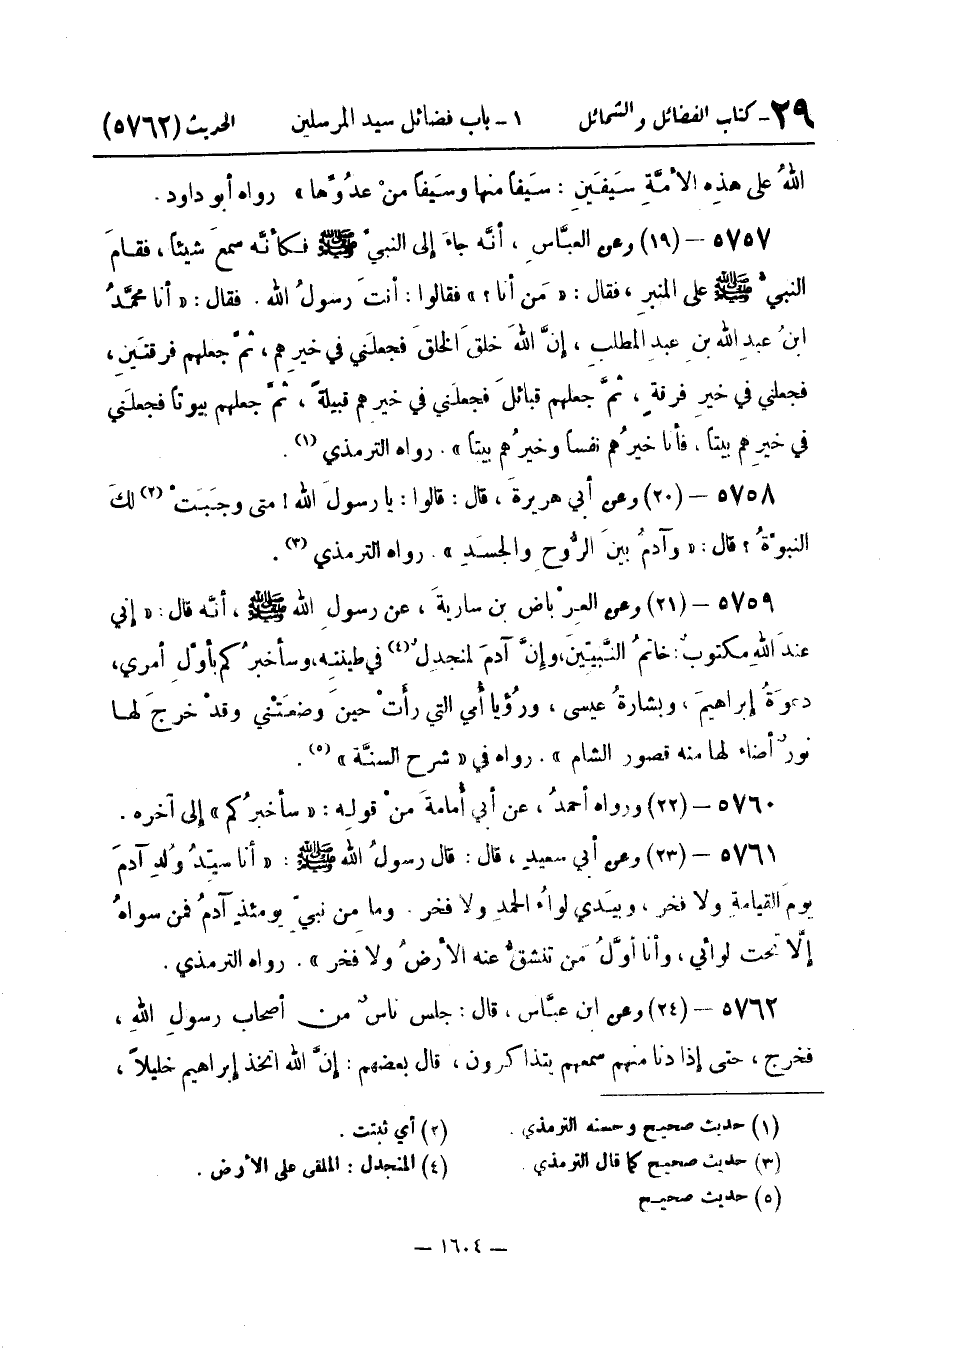 ٢٩- كتاب الفضائل والشمائل ١ - باب فضائل سيد المرسلين الحديث (٥٧٦٢)
اللهُ على هذِهِ الأمَّةِ سَيفَينِ : سَيفاً منها وسَيفاً منْ عدُوِّها » رواه أبو داود .
٥٧٥٧ – (١٩) وعن العبَّاسِ ، أنَّه جاءَ إلى النبيِّ ﷺ فكأنَّه سمعَ شيئاً ، فقامَ
النبيُّ ﷺ على المنبرِ ، فقال : « مَن أنا ؟ » فقالوا : أنتَ رسولُ الله . فقال : « أنا محمَّدُ
ابنُ عبدِ الله بن عبدِ المطلبِ ، إنَّ اللهَ خلقَ الخلقَ فجعلَني في خيرِهم ، ثمَّ جعلهم فرقتَينِ ،
فجعلني في خيرِ فرقةٍ ، ثمَّ جعلهم قبائلَ فجعلَني في خيرهم قبيلةً ، ثمَّ جعلهم بيوتاً فجعلَني
في خيرِهم بيتاً ، فأنا خيرُهم نفساً وخيرُهم بيتاً » . رواه الترمذي (١) .
٥٧٥٨ – (٢٠) وعن أبي هريرةَ ، قال : قالوا : يا رسولَ الله ! متى وجَبَتْ (٢) لكَ
النبوَّةُ ؟ قال : « وآدمُ بينَ الرُّوحِ والجسَدِ » . رواه الترمذي (٣) .
٥٧٥٩ – (٢١) وعن العِرْباض بن ساريةَ ، عن رسولِ الله ﷺ ، أنَّه قال : « إني
عندَ اللهِ مكتوبٌ : خاتمُ النَّبيِّينَ ، وإنَّ آدمَ لمنجدِلٌ (٤) في طينتِه ، وسأخبرُكم بأوَّلِ أمري ،
دعوَةُ إبراهيمَ ، وبشارةُ عيسى ، ورُؤيا أُمي التي رأَتْ حينَ وضعَتْني وقدْ خرجَ لها
نورٌ أضاء لها منه قصور الشام » . رواه في « شرح السنَّة » (٥) .
٥٧٦٠ – (٢٢) ورواه أحمدُ ، عن أبي أُمامةَ منْ قولِه : « سأخبرُكم » إلى آخره .
٥٧٦١ – (٢٣) وعن أبي سعيدٍ ، قال : قال رسولُ الله ﷺ : « أنا سيِّدُ وُلدِ آدمَ
يومَ القيامةِ ولا فخر ، وبيَدي لواءُ الحمدِ ولا فخر . وما مِن نبيٍّ يومئذٍ آدمُ فمن سواهُ
إلَّا تحت لوائي ، وأنا أوَّلُ مَن تنشقُّ عنه الأرضُ ولا فخر » . رواه الترمذي .
٥٧٦٢ – (٢٤) وعن ابن عبَّاس ، قال : جلس ناسٌ من أصحاب رسولِ اللهِ ،
فخرج ، حتى إذا دنا منهم سمعهم يتذاكرون ، قال بعضهم : إنَّ الله اتخذ إبراهيم خليلاً ،
(١) حديث صحيح وحسنه الترمذي . (٢) أي ثبتت .
(٣) حديث صحيح كما قال الترمذي . (٤) المنجدل : الملقى على الأرض .
(٥) حديث صحيح
– ١٦٠٤ –